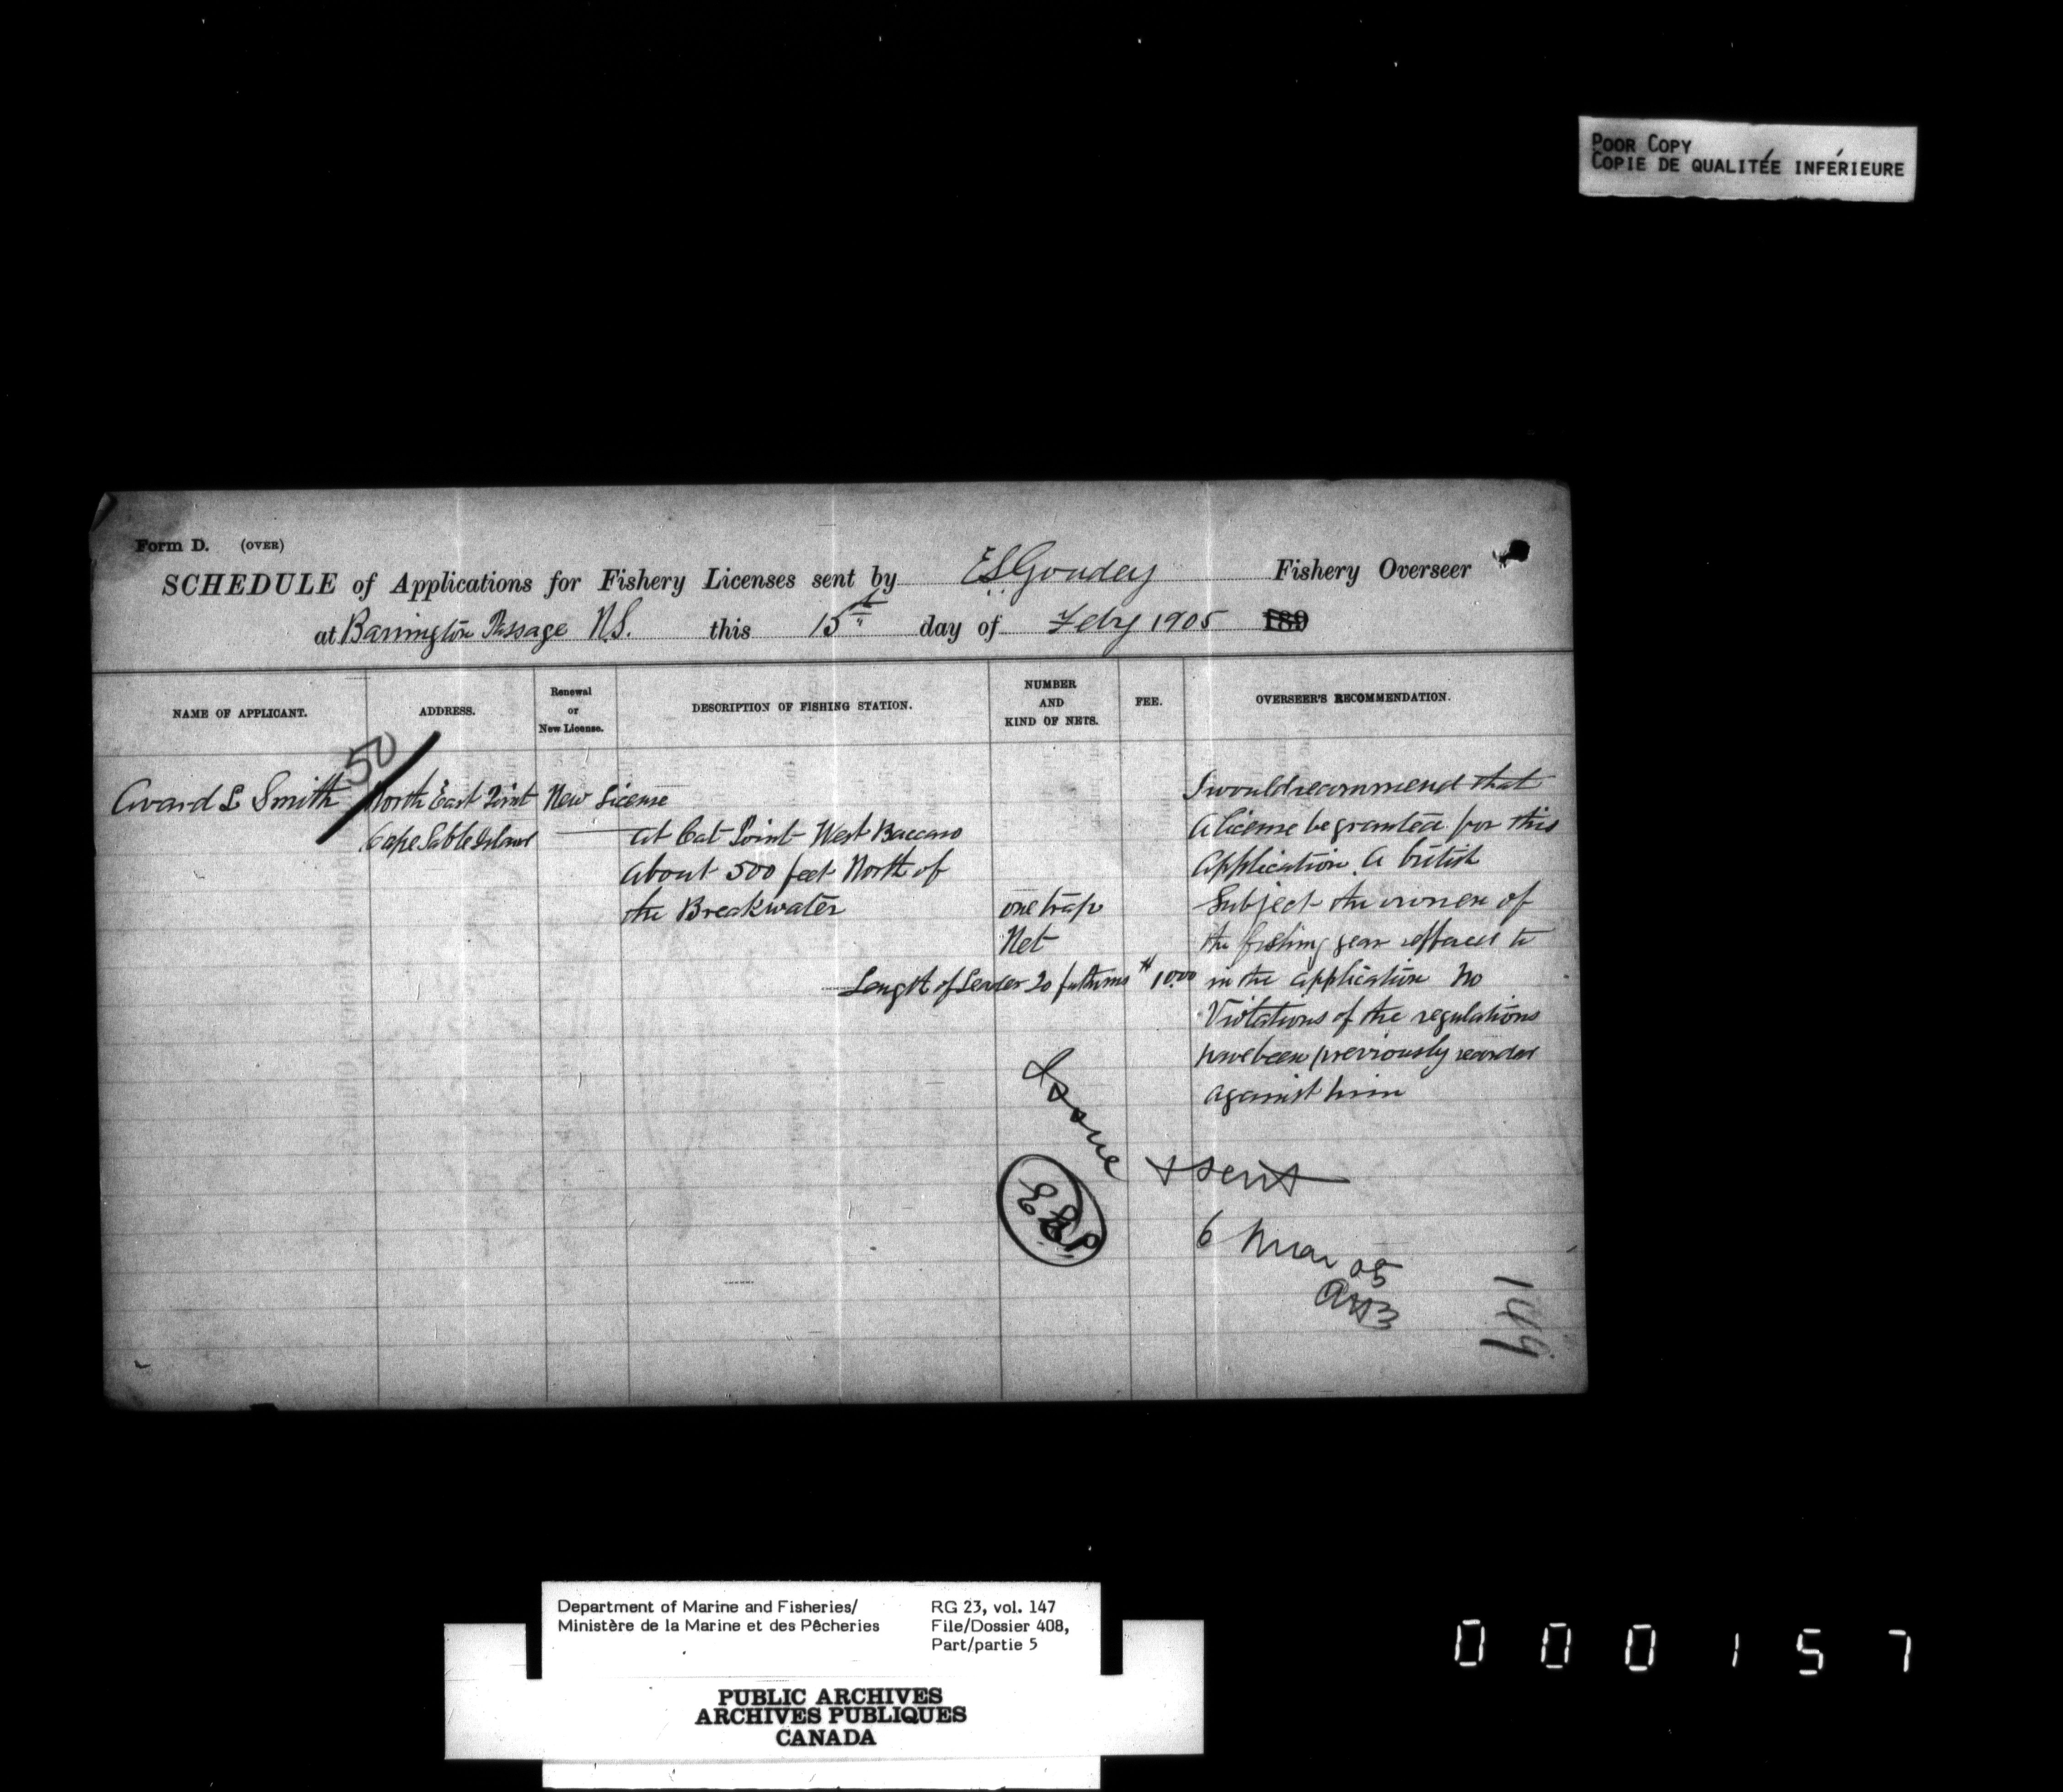 POOR COPY
COPIE DE QUALITÉE INFÉRIEURE
Form D. (OVER)
SCHEDULE of Applications for Fishery Licenses sent by E S Goudey Fishery Overseer
at Barrington Passage N.S. this 15th day of Feby 1905 189
NAME OF APPLICANT.
ADDRESS.
Renewal
or
New License.
DESCRIPTION OF FISHING STATION.
NUMBER
AND
KIND OF NETS.
FEE.
OVERSEER'S RECOMMENDATION.
50
Avard L Smith
North East Point
Cape Sable Island
New License
at Cat Point West Baccaro
about 500 feet North of
the Breakwater
one trap
Net
Length of Leader 20 fathoms
$10.00
I would recommend that
a license be granted for this
application. A british
Subject the owner of
the fishing gear reffered to
in the application No
Violations of the regulations
have been previously recorded
against him
Issue
& sent
6 Mar 05
149
Department of Marine and Fisheries/
Ministère de la Marine et des Pêcheries
RG 23, vol. 147
File/Dossier 408,
Part/partie 5
PUBLIC ARCHIVES
ARCHIVES PUBLIQUES
CANADA
000157